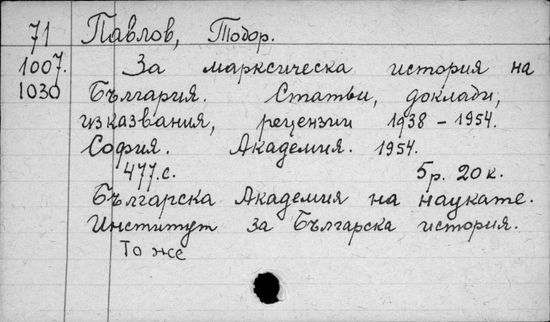 71 Павлов, Тодор.
1007. За марксическа история на
1030 България. Статьи, доклади,
изказвания, рецензии 1938 - 1954.
София. Академия. 1954.
477.с. 5р. 20к.
Бългaрска Академия на наукате.
Институт за Българска история.
То же